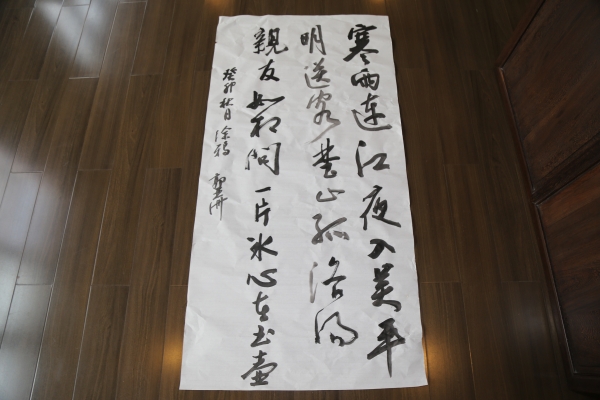 寒雨连江夜入吴平
明送客楚山孤洛阳
親友如相问一片冰心在玉壶
癸卯秋月涂鸦